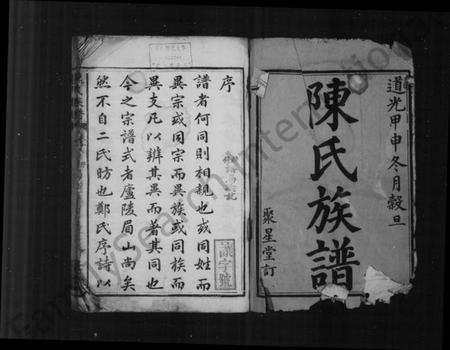 道光甲申冬月穀旦
陳氏族譜
聚星堂訂
序
譜者何同則相親也或同姓而
異宗或同宗而異族或同族而
異支凡以辨其異而著其同也
今之宗譜式者廬陵眉山尚矣
然不自二氏昉也鄭氏序詩以
字號
FamilySearch International